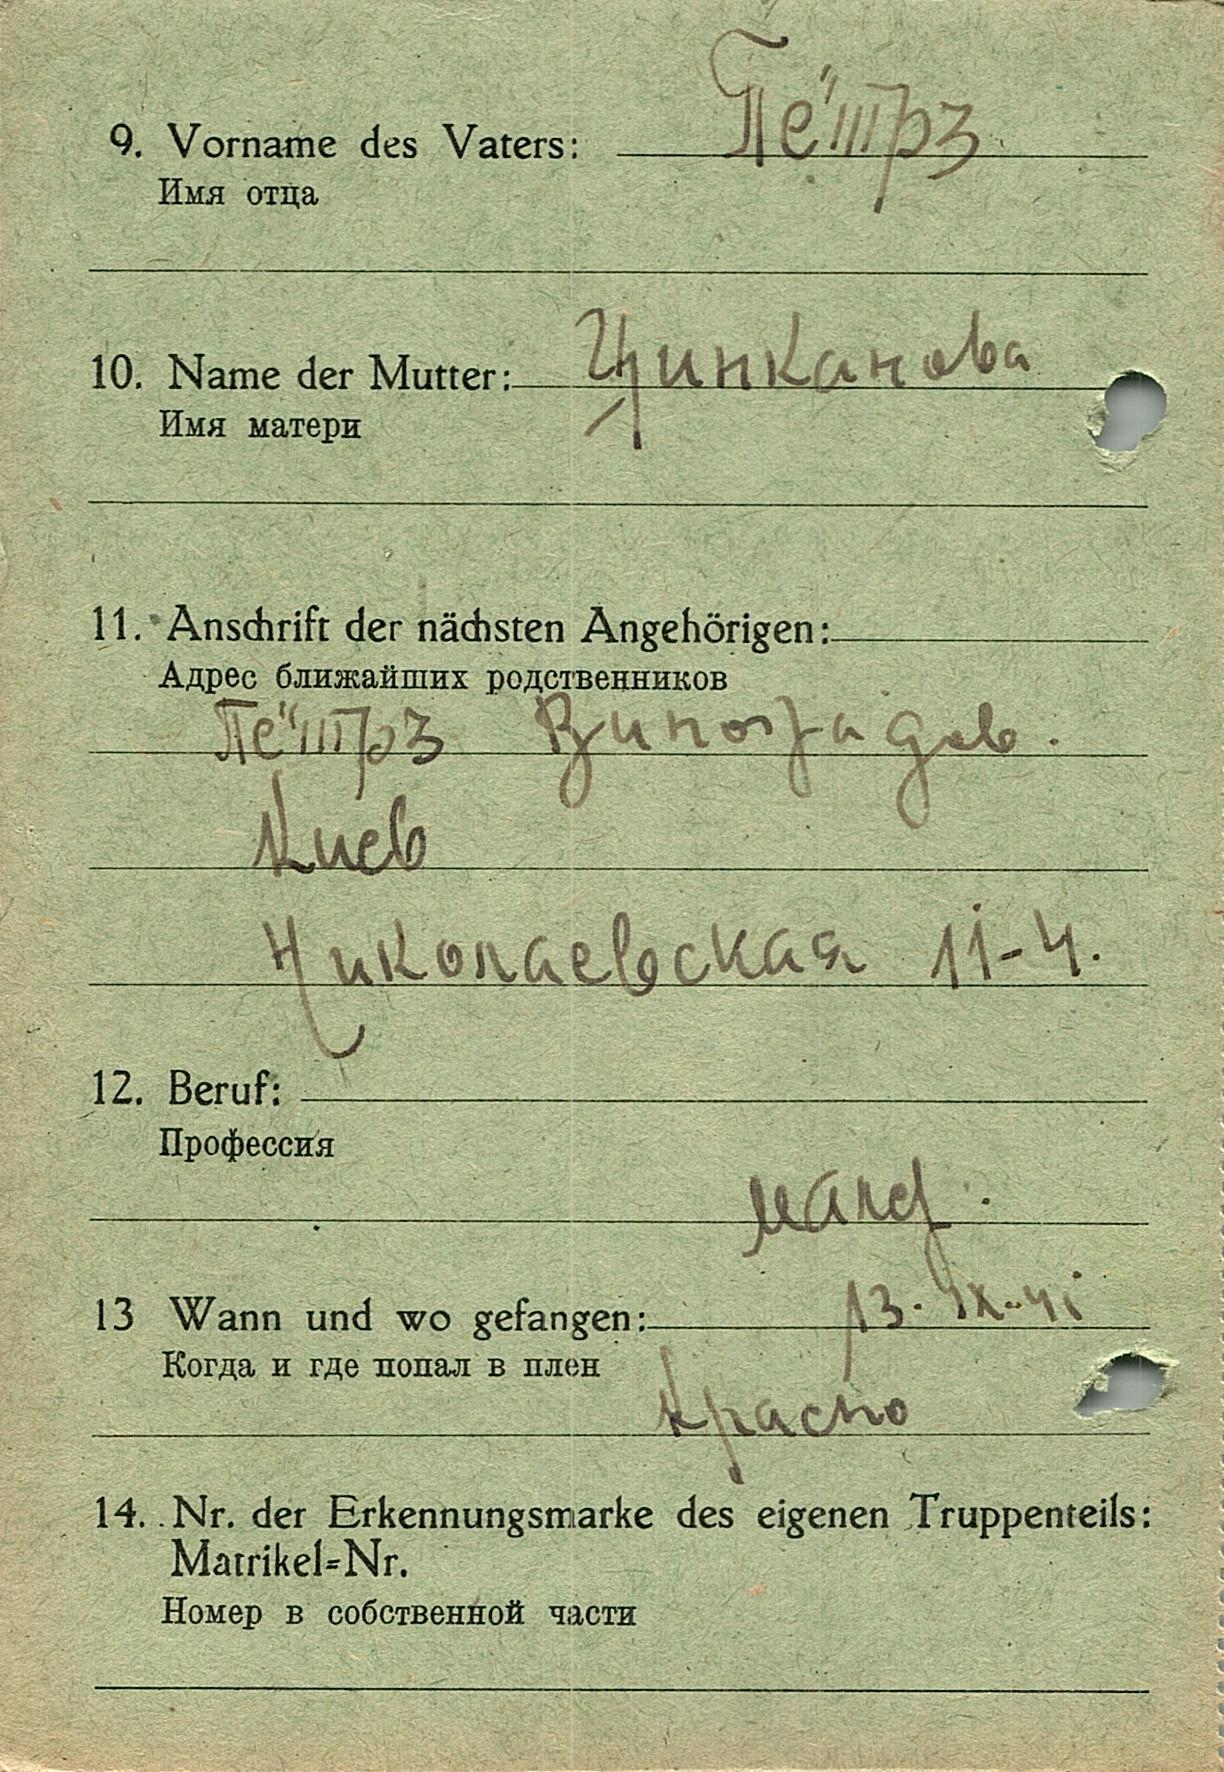 9. Vorname des Vaters: Пётрз
Имя отца
10. Name der Mutter: Цинканова
Имя матери
11. Anschrift der nächsten Angehörigen:
Адрес ближайших родственников
Пётрз Виноградов.
Киев
Николаевская 11-4.
12. Beruf:
Профессия
13 Wann und wo gefangen: 13.IX.41
Когда и где попал в плен
Красно
14. Nr. der Erkennungsmarke des eigenen Truppenteils:
Matrikel=Nr.
Номер в собственной части